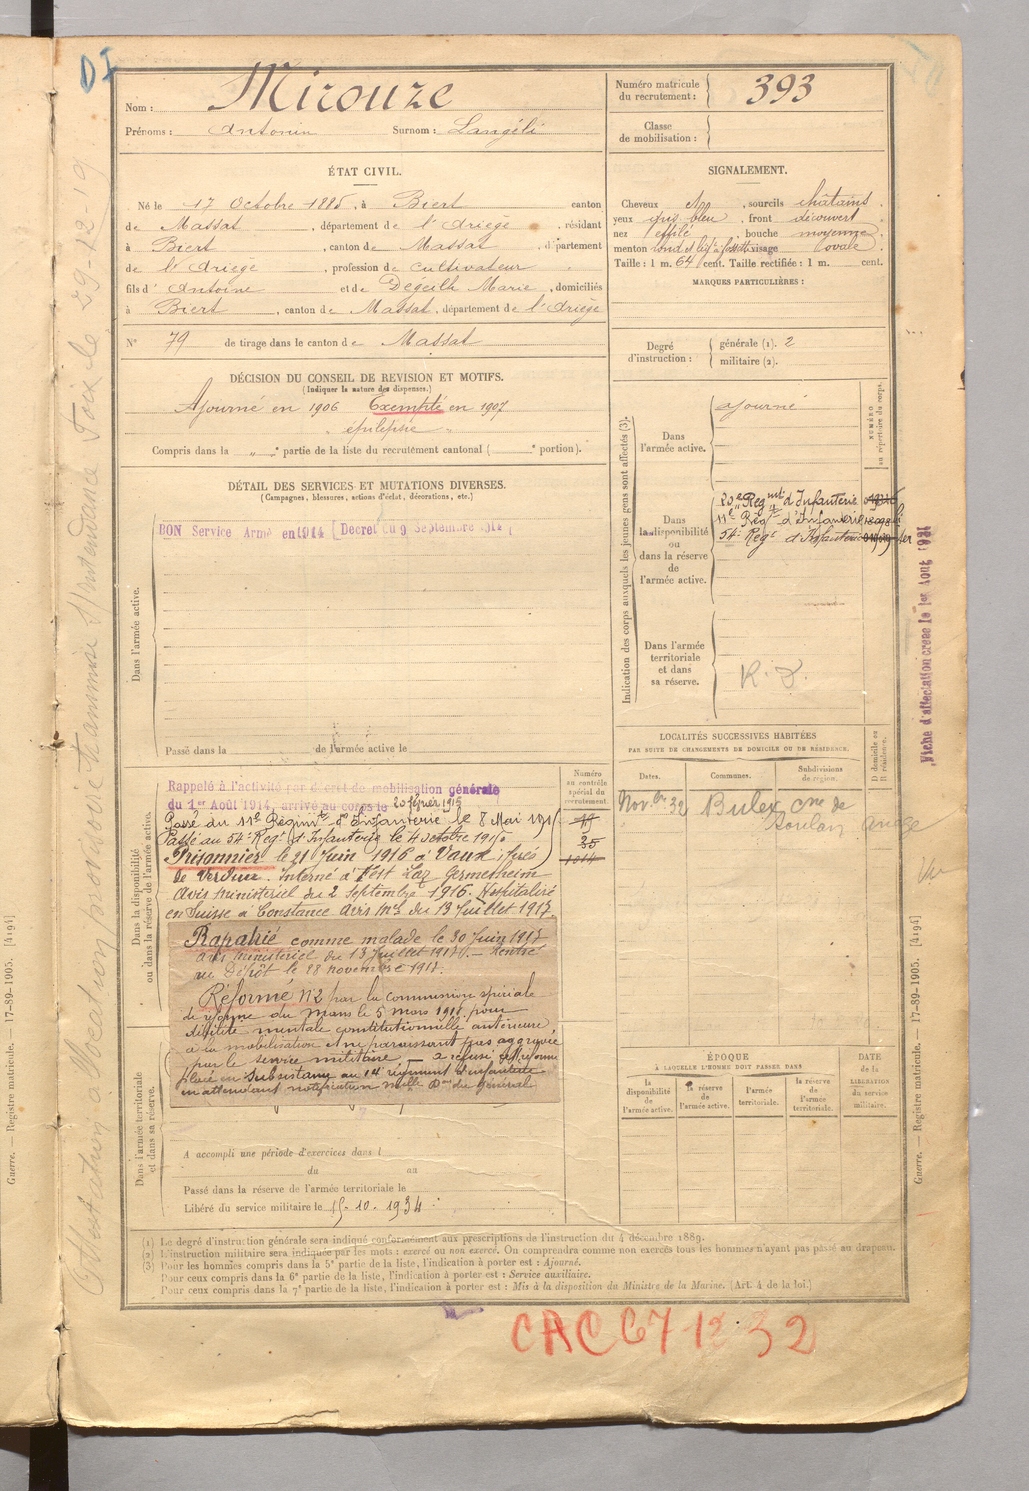 DI
Nom : Mirouze
Prénoms : Antonin Surnom : Langéli
Numéro matricule du recrutement : 393
Classe de mobilisation :
ÉTAT CIVIL.
Né le 17 Octobre 1885, à Biert canton
de Massat, département de l'Ariège, résidant
à Biert, canton de Massat, département
de l'Ariège, profession de cultivateur
fils d'Antoine et de Degeilh Marie, domiciliés
à Biert, canton de Massat, département de l'Ariège
N° 79 de tirage dans le canton de Massat
SIGNALEMENT.
Cheveux , sourcils châtains
yeux gris bleu, front découvert
nez effilé, bouche moyenne
menton rond visage ovale
Taille : 1 m. 64 cent. Taille rectifiée : 1 m. cent.
MARQUES PARTICULIÈRES :
Degré d'instruction : générale (1). 2
militaire (2).
DÉCISION DU CONSEIL DE REVISION ET MOTIFS.
(Indiquer la nature des dispenses.)
Ajourné en 1906 Exempté en 1907
épilepsie
Compris dans la " " partie de la liste du recrutement cantonal ( e portion).
DÉTAIL DES SERVICES ET MUTATIONS DIVERSES.
(Campagnes, blessures, actions d'éclat, décorations, etc.)
BON Service Armé en 1914 [Decret du 9 Septembre 1914
Dans l'armée active.
Passé dans la de l'armée active le
Indication des corps auxquels les jeunes gens sont affectés (3).
NUMÉRO au répertoire du corps.
Dans l'armée active.
ajourné
Dans la disponibilité ou dans la réserve de l'armée active.
20e Regmt d'Infanterie
11e Régt d'Infanterie
54e Regt d'Infanterie
Dans l'armée territoriale et dans sa réserve.
Fiche d'affectation creee le 1er Aout 1921
LOCALITÉS SUCCESSIVES HABITÉES
PAR SUITE DE CHANGEMENTS DE DOMICILE OU DE RÉSIDENCE.
Dates. Communes. Subdivisions de region. D domicile ou R résidence.
Novbre 32 Bulex, cne de
Roulan Ariège
Dans la disponibilité ou dans la réserve de l'armée active.
Numéro au contrôle spécial du recrutement.
Rappelé à l'activité par décret de mobilisation générale
du 1er Août 1914, arrivé au corps le 20 février 1915
Passé au 11e Régimt d'Infanterie le 8 Mai 1915
Passé au 54e Regt d'Infanterie le 4 octobre 1915
Prisonnier le 21 Juin 1916 à Vaux, près
de Verdun. Interné à Germesheim
Avis ministeriel du 2 Septembre 1916. Hospitalisé
en Suisse à Constance avis mel du 13 Juillet 1917.
Rapatrié comme malade le 30 Juin 1917
avis ministériel du 13 Juillet 1917. — Rentré
au Dépôt le 28 novembre 1917.
Réformé N°2 par la commission spéciale
de réforme du Mans le 5 mars 1918 pour
débilité mentale constitutionnelle antérieure
à la mobilisation et ne paraissant pas aggravée
par le service militaire — a refusé cette réforme
placé en subsistance au 14e régiment d'infanterie
en attendant notification nelle Don du général
Dans l'armée territoriale et dans sa réserve.
A accompli une période d'exercices dans l
du au
Passé dans la réserve de l'armée territoriale le
Libéré du service militaire le 15-10-1934
ÉPOQUE
À LAQUELLE L'HOMME DOIT PASSER DANS
la disponibilité de l'armée active. la réserve de l'armée active. l'armée territoriale. la réserve de l'armée territoriale.
DATE de la LIBÉRATION du service militaire.
(1) Le degré d'instruction générale sera indiqué conformément aux prescriptions de l'instruction du 4 décembre 1889.
(2) L'instruction militaire sera indiquée par les mots : exercé ou non exercé. On comprendra comme non exercés tous les hommes n'ayant pas passé au drapeau.
(3) Pour les hommes compris dans la 5e partie de la liste, l'indication à porter est : Ajourné.
Pour ceux compris dans la 6e partie de la liste, l'indication à porter est : Service auxiliaire.
Pour ceux compris dans la 7e partie de la liste, l'indication à porter est : Mis à la disposition du Ministre de la Marine. (Art. 4 de la loi.)
Guerre. — Registre matricule. — 17-89-1905. [4194]
Guerre. — Registre matricule. — 17-89-1905. [4194]